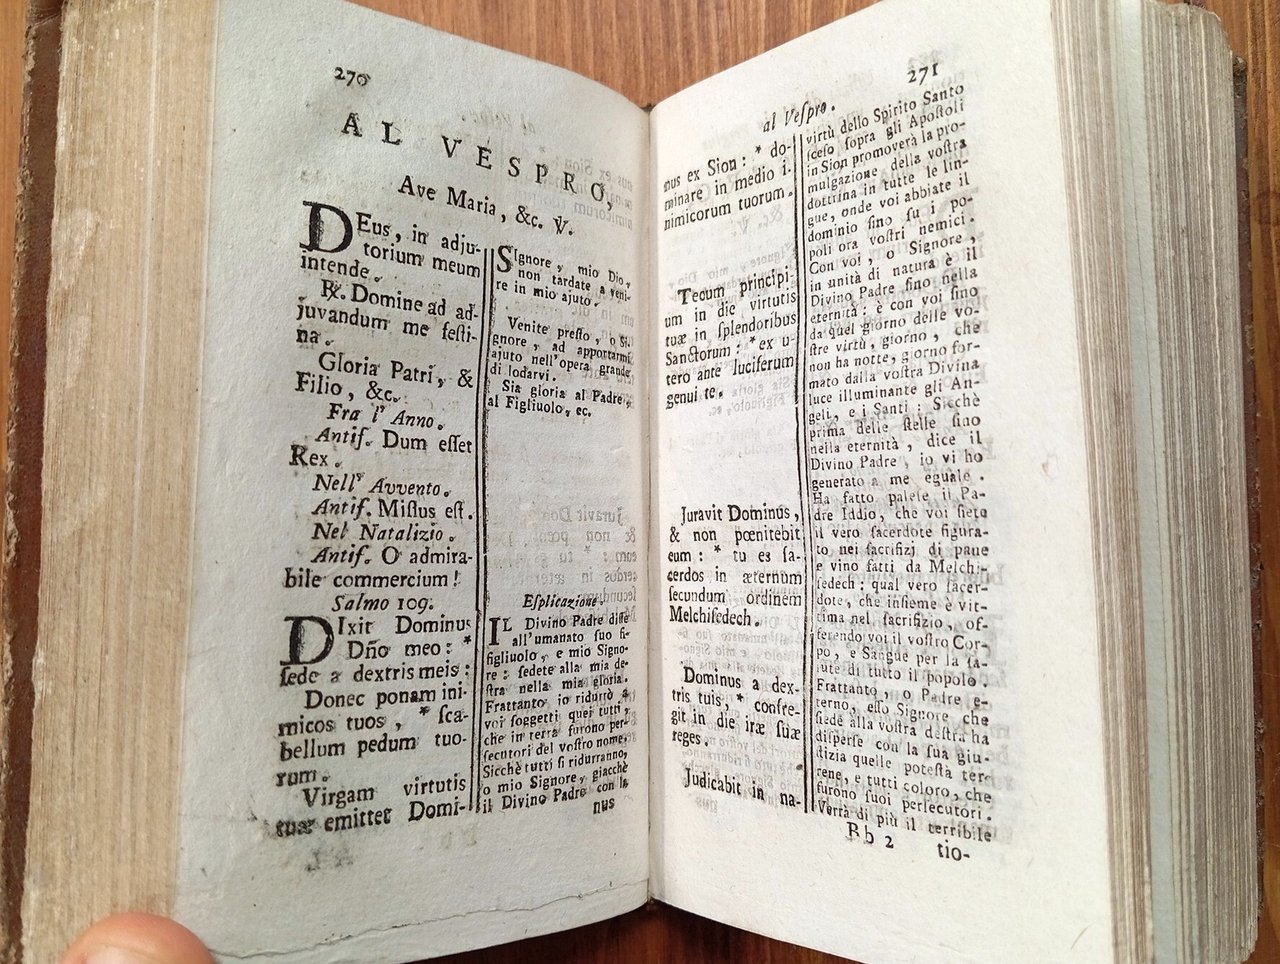 270
AL VESPRO,
Ave Maria, &c. ℣.
DEus, in adju-
torium meum
intende.
℟. Domine ad ad-
juvandum me feſti-
na.
Gloria Patri, &
Filio, &c.
Fra l' Anno.
Antif. Dum eſſet
Rex.
Nell' Avvento.
Antif. Miſſus eſt.
Nel Natalizio.
Antif. O admira-
bile commercium!
Salmo 109.
DIxit Dominus
Dño meo: *
ſede a dextris meis:
Donec ponam ini-
micos tuos, * ſca-
bellum pedum tuo-
rum.
Virgam virtutis
tuæ emittet Domi-
SIgnore, mio Dio,
non tardate a veni-
re in mio ajuto.
Venite preſto, o Si-
gnore, ad apportarmi
ajuto nell'opera grande
di lodarvi.
Sia gloria al Padre,
al Figliuolo, ec.
Eſplicazione.
IL Divino Padre diſſe
all'umanato ſuo fi-
gliuolo, e mio Signo-
re: ſedete alla mia de-
ſtra nella mia gloria.
Frattanto io ridurrò a
voi ſoggetti quei tutti,
che in terra furono per-
ſecutori del voſtro nome.
Sicchè tutti ſi ridurranno,
o mio Signore, giacchè
il Divino Padre con la
nus
271
al Veſpro.
nus ex Sion: * do-
minare in medio i-
nimicorum tuorum.
Tecum principi-
um in die virtutis
tuæ in ſplendoribus
Sanctorum: * ex u-
tero ante luciferum
genui te.
Juravit Dominus,
& non pœnitebit
eum: * tu es ſa-
cerdos in æternum
ſecundum ordinem
Melchiſedech.
Dominus a dex-
tris tuis, * confre-
git in die iræ ſuæ
reges.
Judicabit in na-
virtù dello Spirito Santo
ſceſo ſopra gli Apoſtoli
in Sion promoverà la pro-
mulgazione della voſtra
dottrina in tutte le lin-
gue, onde voi abbiate il
dominio ſino ſu i po-
poli ora voſtri nemici.
Con voi, o Signore,
in unità di natura è il
Divino Padre ſino nella
eternità: è con voi ſino
da quel giorno delle vo-
ſtre virtù, giorno, che
non ha notte, giorno for-
mato dalla voſtra Divina
luce illuminante gli An-
geli, e i Santi: Sicchè
prima delle ſtelle ſino
nella eternità, dice il
Divino Padre, io vi ho
generato a me eguale.
Ha fatto paleſe il Pa-
dre Iddio, che voi ſiete
il vero ſacerdote figura-
to nei ſacrifizj di pane
e vino fatti da Melchi-
ſedech: qual vero ſacer-
dote, che inſieme è vit-
tima nel ſacrifizio, of-
ferendo voi il voſtro Cor-
po, e Sangue per la ſa-
lute di tutto il popolo.
Frattanto, o Padre e-
terno, eſſo Signore che
ſiede alla voſtra deſtra ha
diſperſe con la ſua giu-
ſtizia quelle poteſtà ter-
rene, e tutti coloro, che
furono ſuoi perſecutori.
Verrà di più il terribile
Bb 2
tio-